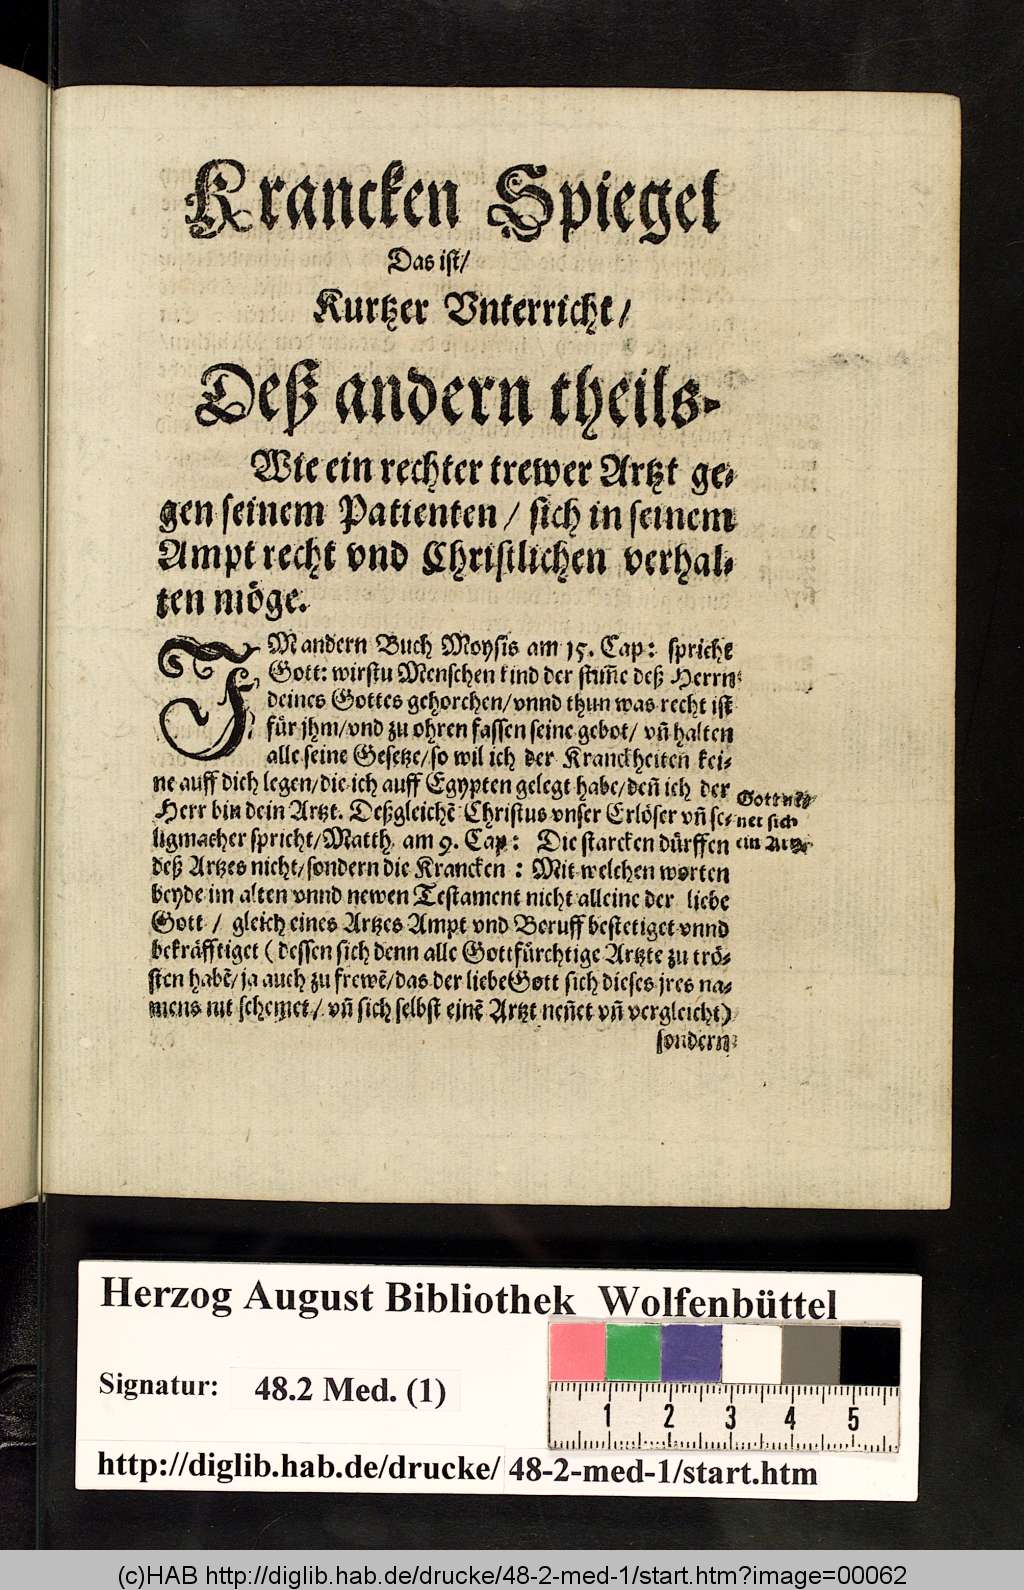 Krancken Spiegel
Das ist/
Kurtzer Vnterricht/
Deß andern theils-
Wie ein rechter trewer Artzt ge-
gen seinem Patienten / sich in seinem
Ampt recht vnd Christlichen verhal-
ten möge.
IM andern Buch Moysis am 15. Cap: spricht
Gott: wirstu Menschen kind der stim̃e deß Herrn
deines Gottes gehorchen/vnnd thun was recht ist
für jhm/vnd zu ohren fassen seine gebot/ vñ halten
alle seine Gesetze/so wil ich der Kranckheiten kei-
ne auff dich legen/die ich auff Egypten gelegt habe/deñ ich der
Herr bin dein Artzt. Deßgleichẽ Christus vnser Erlöser vñ se-
ligmacher spricht/Matth. am 9. Cap: Die starcken dürffen
deß Artzes nicht/sondern die Krancken : Mit welchen worten
beyde im alten vnnd newen Testament nicht alleine der liebe
Gott / gleich eines Artzes Ampt vnd Beruff bestetiget vnnd
bekräfftiget ( dessen sich denn alle Gottfürchtige Artzte zu trö-
sten habẽ/ja auch zu frewẽ/das der liebe Gott sich dieses jres na-
mens nit schemet/ vñ sich selbst einẽ Artzt neñet vñ vergleicht)
sondern
Gott nen-
net sich
ein Artzt
Herzog August Bibliothek Wolfenbüttel
Signatur: 48.2 Med. (1)
1 2 3 4 5
http://diglib.hab.de/drucke/ 48-2-med-1/start.htm
(c)HAB http://diglib.hab.de/drucke/48-2-med-1/start.htm?image=00062